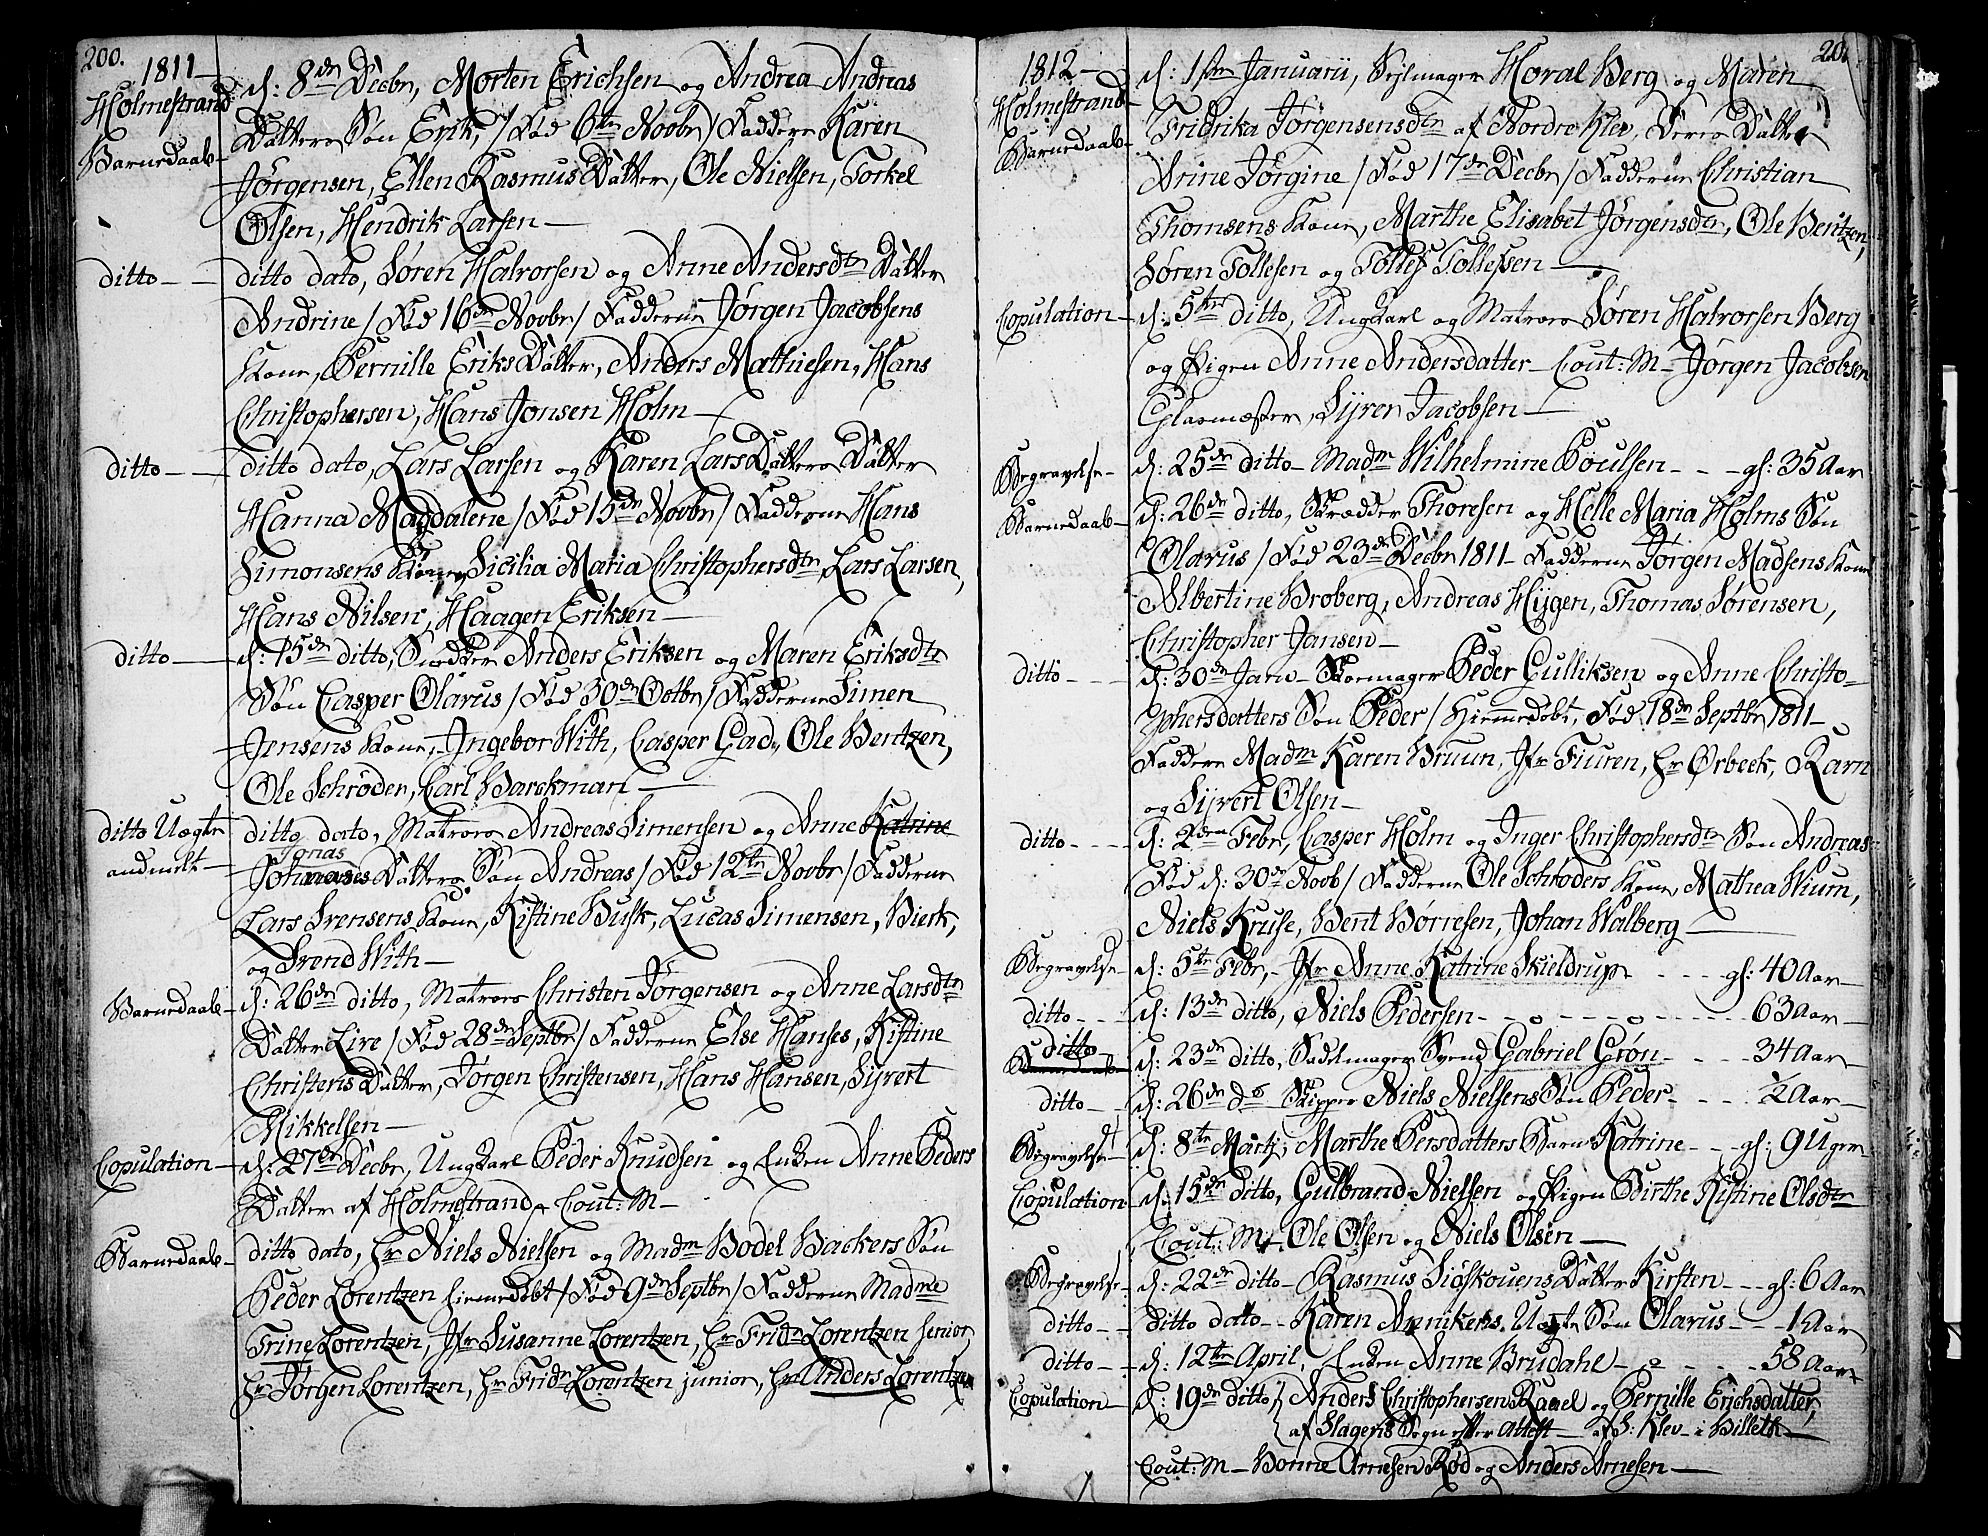 200.
1811
Holmestrand
Barnedaab
d: 8de Decbr, Morten Erichsen og Andrea Andreas
Datters Søn Erik, / Fød 6te Novbr / Faddere Karen
Jørgensen, Ellen Rasmus Datter, Ole Nielsen, Torkel
Olsen, Hendrik Larsen
ditto ditto dato, Søren Halvorsen og Anne Andersdtr Datter
Andrine / Fød 16de Novbr / Fadderne Jørgen Jacobsens
Kone, Pernille Eriks Datter, Anders Mathiesen, Hans
Christophersen, Hans Jonsen Holm
ditto ditto dato, Lars Larsen og Karen Lars Datters Datter
Hanna Magdalene / Fød 15de Novbr / Fadderne Hans
Simonsens Kone, Sicilia Maria Christophersdtr, Lars Larsen,
Hans Nilsen, Haagen Eriksen
ditto d: 15de ditto, Snedker Anders Eriksen og Maren Eriksdtr
Søn Casper Olavus / Fød 30de Octbr / Fadderne Simen
Jensens Kone, Ingebor With, Casper Gad, Ole Bentzen,
Ole Schrøder, Carl Barckman
ditto Uægte ditto dato, Matros Andreas Simensen og Anne Katrine
Jonas
andmelt Johannes Datters Søn Andreas / Fød 12te Novbr / Fadderne
Lars Svensens Kone, Kistine Busk, Lucas Simensen, Bierk,
og Svend With
Barnedaab d: 26de ditto, Matros Christen Jørgensen og Anne Larsdtr
Datter Live / Fød 28de Septbr / Fadderne Else Hanses, Kistine
Christens Datter, Jørgen Christensen, Hans Hansen, Sivert
Mikkelsen
Copulation d: 27de Decbr, Ungkarl Peder Knudsen og Enken Anne Peders
Datter af Holmestrand, Cout: M
Barnedaab ditto dato, Hr Niels Nielsen og Madm Bodel Backers Søn
Peder Lorentzen hiemedøbt / Fød 9de Septbr / Fadderne Madme
Trine Lorentzen, Jfr Susanne Lorentzen, Hr Fridr Lorentzen senior,
Hr Jørgen Lorentzen, Hr Fridr Lorentzen junior, Hr Anders Lorentzen
201
1812
Holmestrand
Barnedaab
d: 1ste Januarii, Sejlmager Horal Berg og Maren
Fridrika Jørgensensdtr af Nordre Klev, Deres Datter
Arine Jørgine / Fød 17de Decbr / Fadderne Christian
Thomsens Kone, Marthe Elisabet Jørgensdtr, Ole Bentzen,
Søren Tollesen og Tollef Tollefsen
Copulation d: 5te ditto, Ungkarl og Matros Søren Halvorsen Berg
og Pigen Anne Andersdatter Cout: M Jørgen Jacobsen
Glasmester, Syver Jacobsen
Begravelse d: 25de ditto Madm Wilhelmine Poulsen gl: 35 Aar
Barnedaab d: 26de ditto, Skrædder Thoresen og Helle Maria Holms Søn
Olavus / Fød 23de Decbr 1811 Fadderne Jørgen Madsens Kone
Albertine Broberg, Andreas Hygen, Thomas Sørensen,
Christopher Jansen
ditto d: 30de Janv Skomager Peder Gulliksen og Anne Christo-
phersdatters Søn Peder / Hiemedøbt, Fød 18de Septbr 1811
Faddere Madm Karen Bruun, Jfr Fiuren, Hr Ørbeck, Ravn
og Syvert Olsen
ditto d: 2den Febr, Casper Holm og Inger Christophersdtr Søn Andreas
Fød d: 30de Novb / Fadderne Ole Schrøders Kone, Mathea Wium,
Niels Kruse, Bent Børresen, Johan Walberg
Begravelse d: 5te Febr, Jfr Anne Katrine Skieldrup gl: 40 Aar
ditto d: 13de ditto, Niels Pedersen 63 Aar
ditto
Barnedaab d: 23de ditto, Sadelmager Svend Gabriel Grøn 34 Aar
ditto d: 26de do Skipper Niels Nielsens Søn Peder ½ Aar
Begravelse d: 8te Martj, Marthe Persdatters Barn Katrine gl: 9 Uger
Copulation d: 15de ditto, Gulbrand Nielsen og Pigen Birthe Kistine Olsdtr
Cout: M Ole Olsen og Niels Olsen
Begravelse d: 22de ditto Rasmus Siøskouens Datter Kirsten gl: 6 Aar
ditto ditto dato Karen Annikens Uægte Søn Olavus 1 Aar
ditto d: 12te April, Enken Anne Brudahl 58 Aar
Copulation d: 19de ditto Anders Christophersen Raael og Pernille Erichsdatter,
af Slagens Sogn efter Attest af S: Klev i Billeth
Cout: M Bonne Arnesen Rød og Anders Arnesen